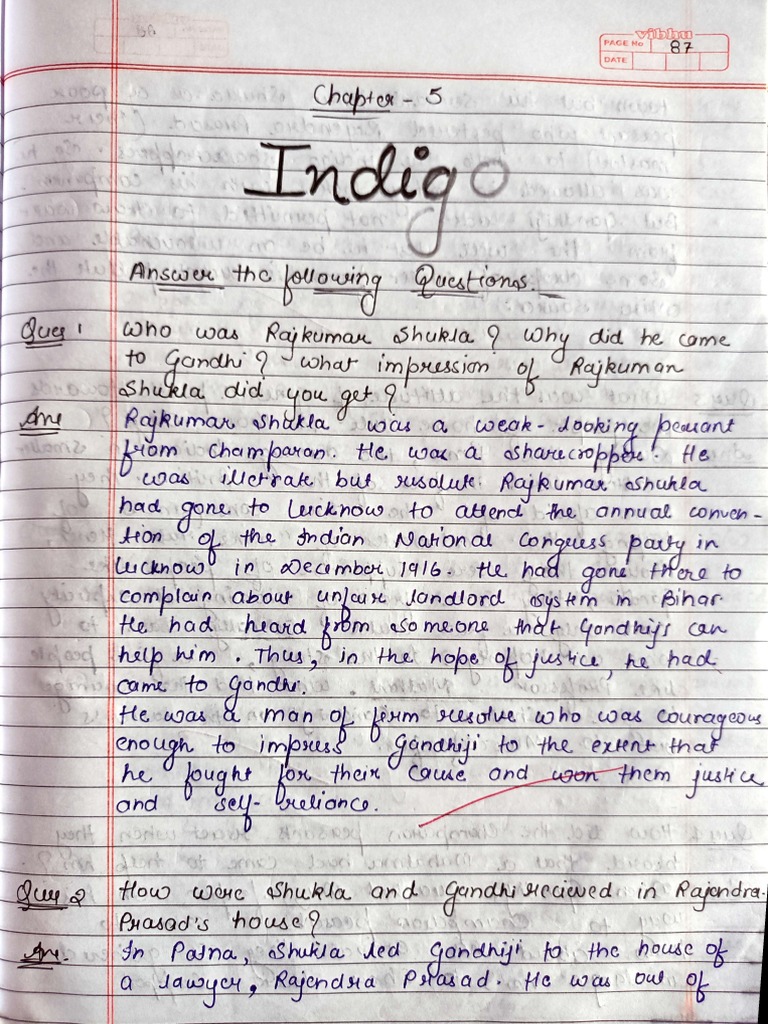 vibhu
PAGE No 87
DATE
Chapter - 5
Indigo
Answer the following Questions.
Ques 1 Who was Rajkumar Shukla? Why did he came
to Gandhi? What impression of Rajkumar
Shukla did you get?
Ans Rajkumar Shukla was a weak-looking pesant
from Champaran. He was a sharecropper. He
was illetrate but resolute. Rajkumar Shukla
had gone to Lucknow to attend the annual conven-
tion of the Indian National Congress party in
Lucknow in December 1916. He had gone there to
complain about unfair landlord system in Bihar.
He had heard from someone that Gandhiji can
help him. Thus, in the hope of justice, he had
came to Gandhi.
He was a man of firm resolve who was courageous
enough to impress Gandhiji to the extent that
he fought for their cause and won them justice
and self-reliance.
Ques 2 How were Shukla and Gandhi recieved in Rajendra
Prasad's house?
Ans. In Patna, Shukla led Gandhiji to the house of
a lawyer, Rajendra Prasad. He was out of